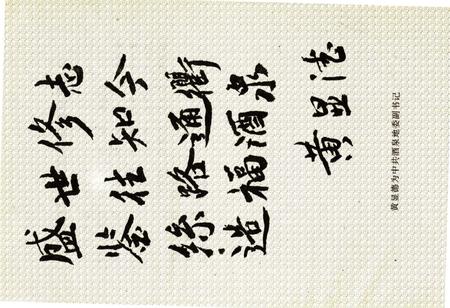 盛世修志
鉴往知今
絲路通衢
造福酒泉
黄显德
黄显德为中共酒泉地委副书记